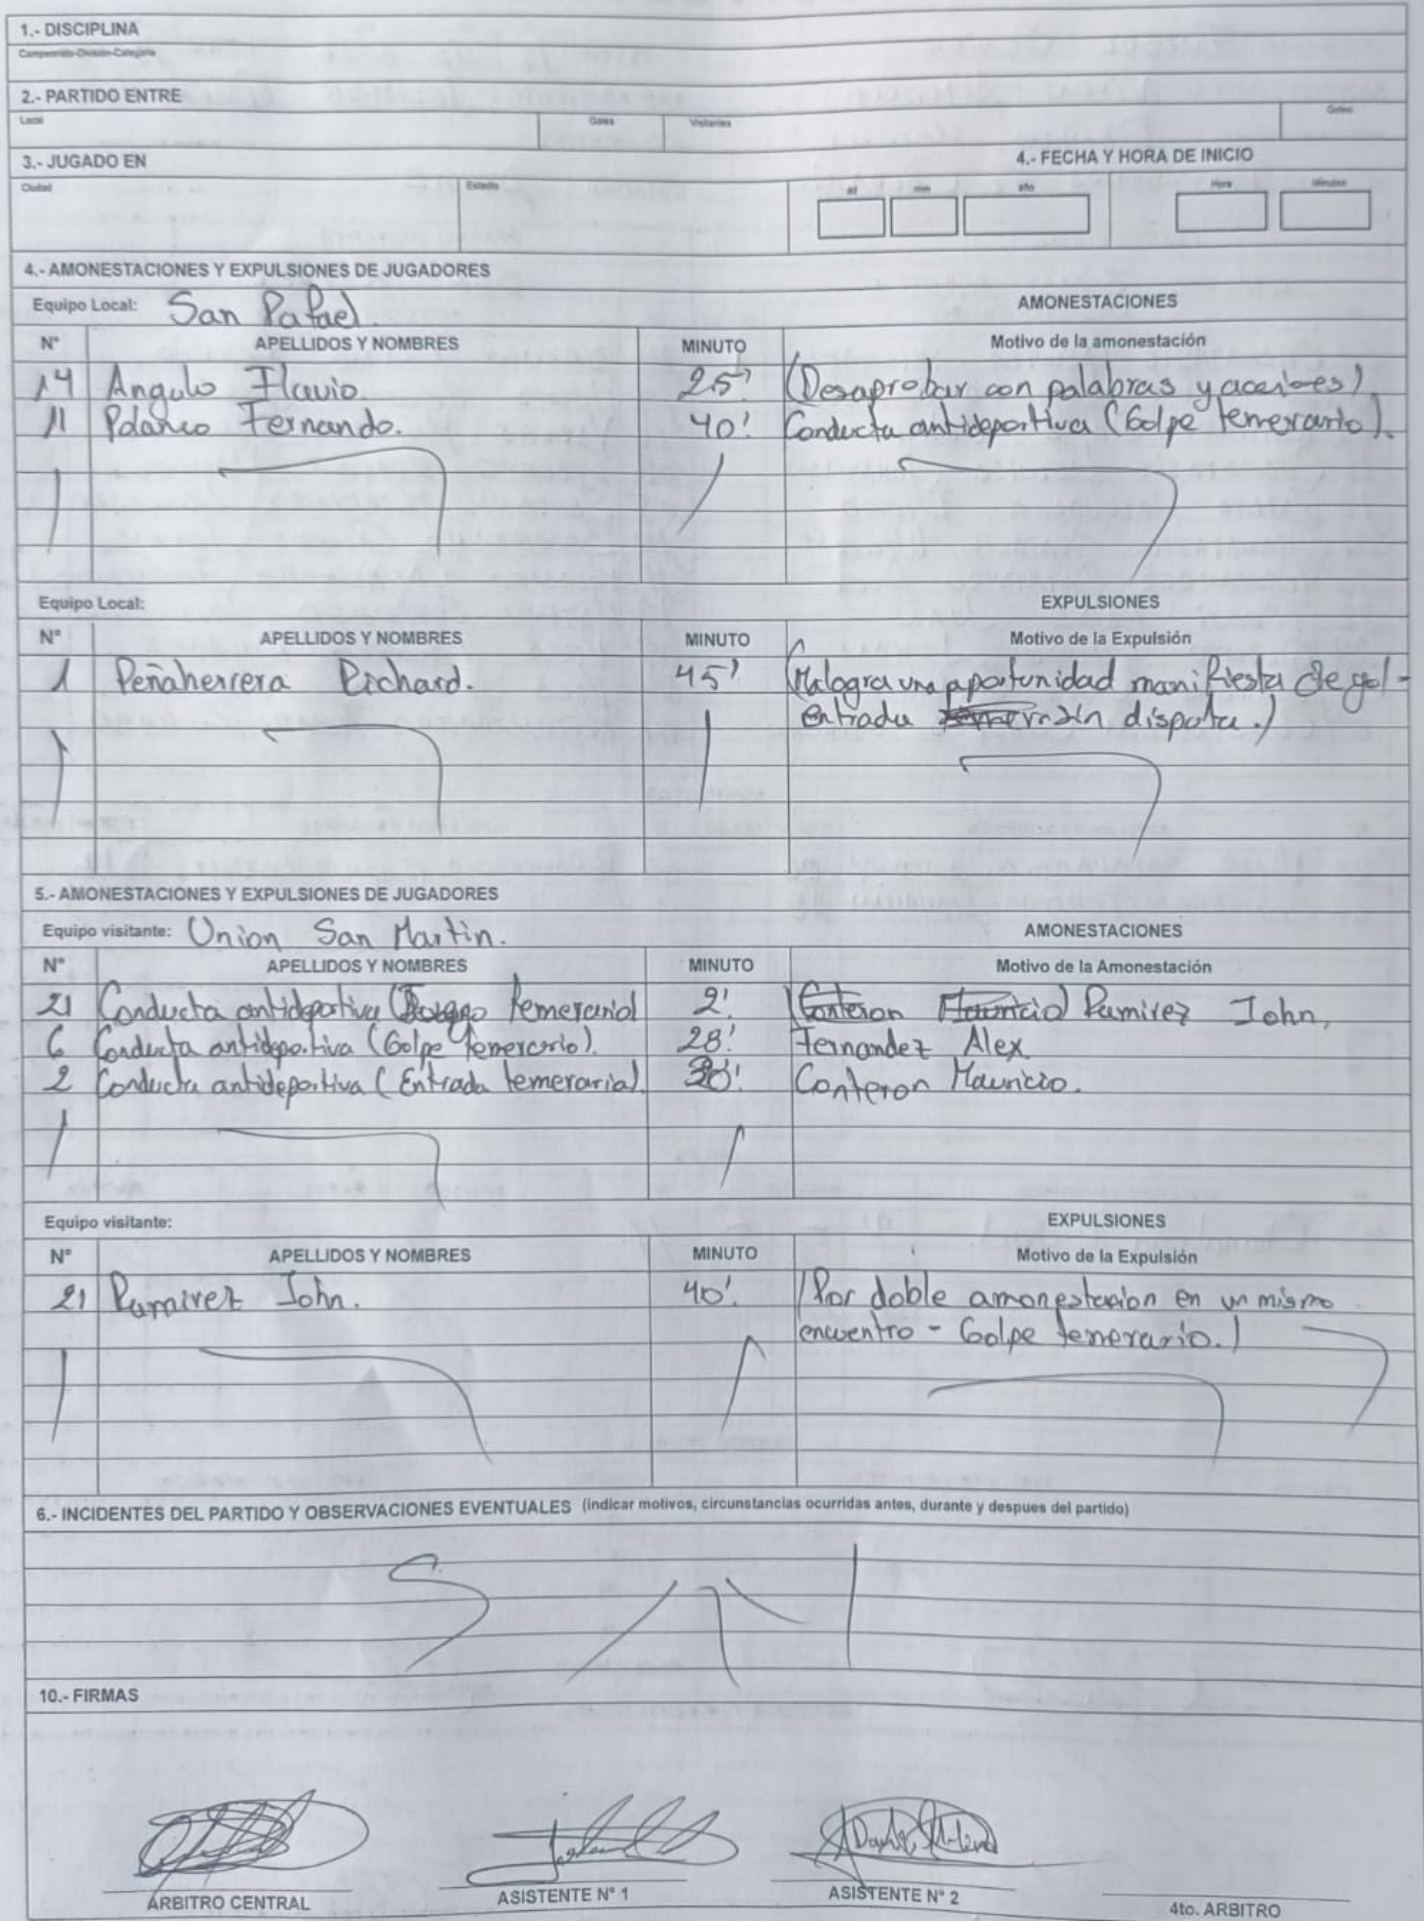 1.- DISCIPLINA
Campeonato-División-Categoria
2.- PARTIDO ENTRE
Local Goles Visitantes Goles
3.- JUGADO EN 4.- FECHA Y HORA DE INICIO
Ciudad Estadio dd mm año Hora Minutos
4.- AMONESTACIONES Y EXPULSIONES DE JUGADORES
Equipo Local: San Rafael. AMONESTACIONES
N° APELLIDOS Y NOMBRES MINUTO Motivo de la amonestación
14 Angulo Flavio. 25' (Desaprobar con palabras y acciones)
11 Fernando. 40' Conducta antideportiva (Golpe temerario).
Equipo Local: EXPULSIONES
N° APELLIDOS Y NOMBRES MINUTO Motivo de la Expulsión
1 Peñaherrera Richard. 45' (Malogra una oportunidad manifiesta de gol-
entrada sin disputa.)
5.- AMONESTACIONES Y EXPULSIONES DE JUGADORES
Equipo visitante: Union San Martin. AMONESTACIONES
N° APELLIDOS Y NOMBRES MINUTO Motivo de la Amonestación
21 Conducta antideportiva (Juego temerario) 2' (Conteron Mauricio) Ramirez John,
6 Conducta antideportiva (Golpe temerario). 28' Fernandez Alex
2 Conducta antideportiva (Entrada temeraria). 30' Conteron Mauricio.
Equipo visitante: EXPULSIONES
N° APELLIDOS Y NOMBRES MINUTO Motivo de la Expulsión
21 Ramirez John. 40' (Por doble amonestacion en un mismo
encuentro - Golpe temerario.)
6.- INCIDENTES DEL PARTIDO Y OBSERVACIONES EVENTUALES (indicar motivos, circunstancias ocurridas antes, durante y despues del partido)
S/N
10.- FIRMAS
ARBITRO CENTRAL ASISTENTE N° 1 ASISTENTE N° 2 4to. ARBITRO